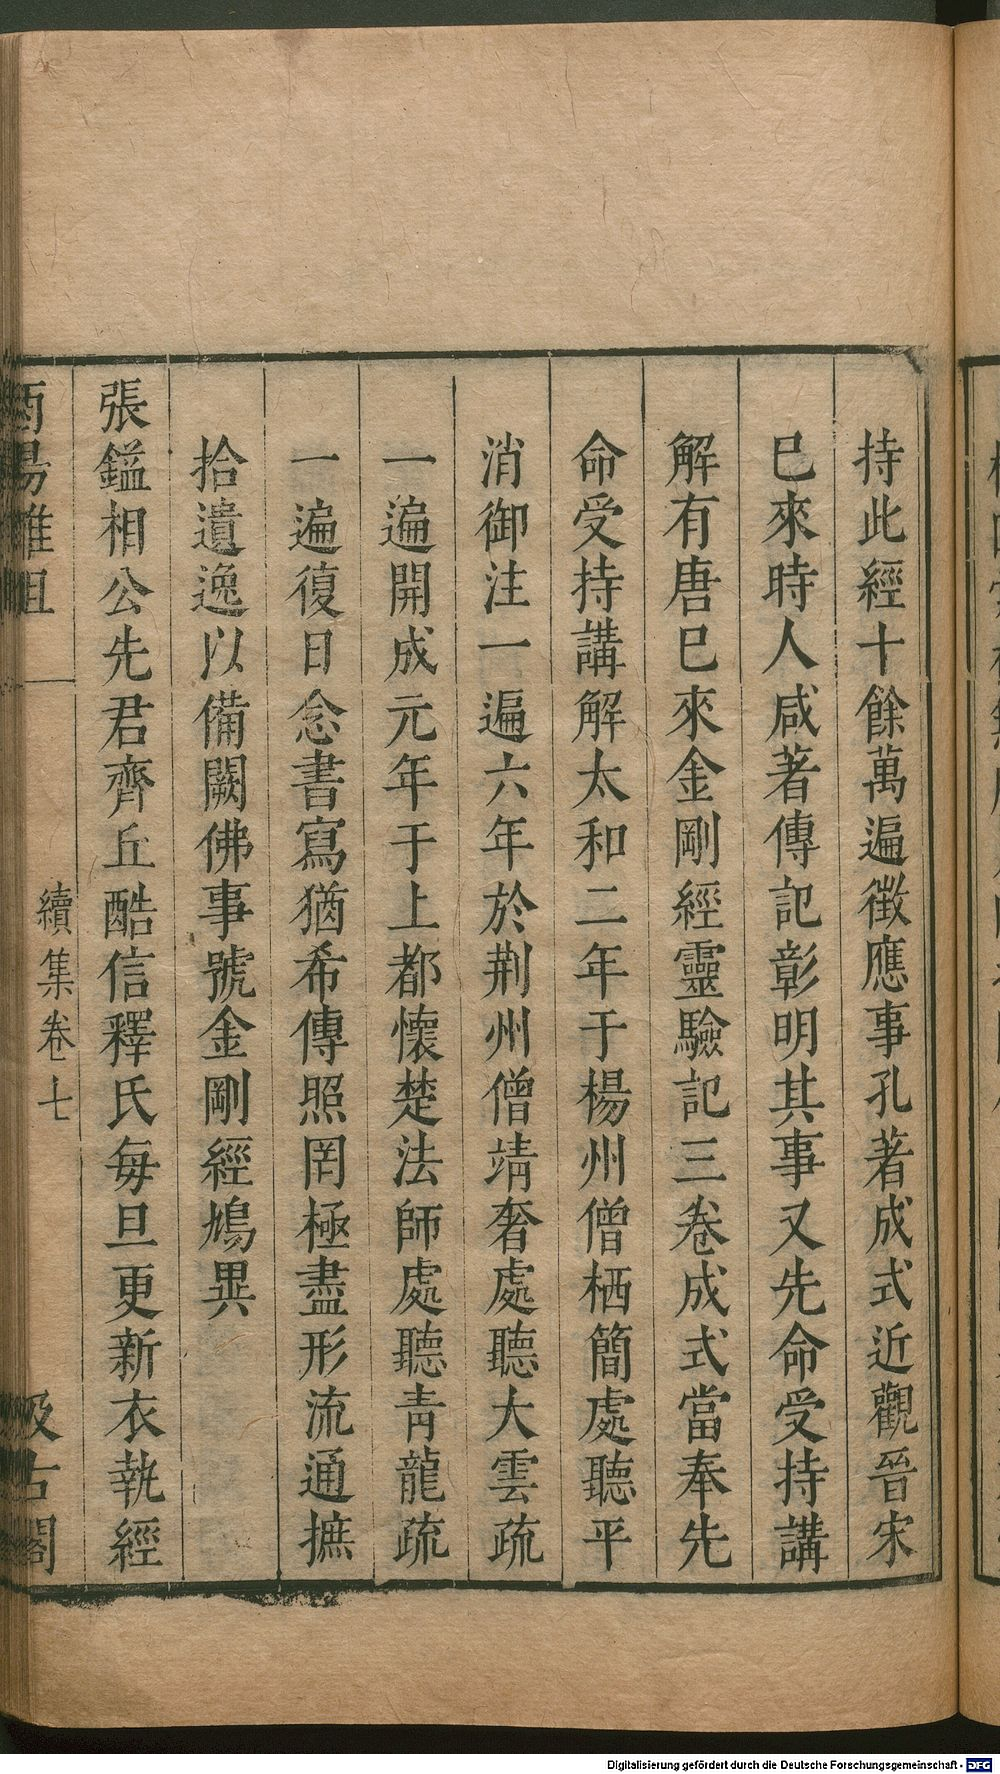 持此經十餘萬遍徵應事孔著成式近觀晉宋
巳來時人咸著傳記彰明其事又先命受持講
解有唐巳來金剛經靈驗記三卷成式當奉先
命受持講解太和二年于楊州僧栖簡處聽平
消御注一遍六年於荆州僧靖奢處聽大雲疏
一遍開成元年于上都懷楚法師處聽青龍疏
一遍復日念書寫猶希傳照罔極盡形流通摭
拾遺逸以備闕佛事號金剛經鳩異
張鎰相公先君齊丘酷信釋氏每旦更新衣執經
酉陽雜俎
續集卷七
汲古閣
Digitalisierung gefördert durch die Deutsche Forschungsgemeinschaft - DFG